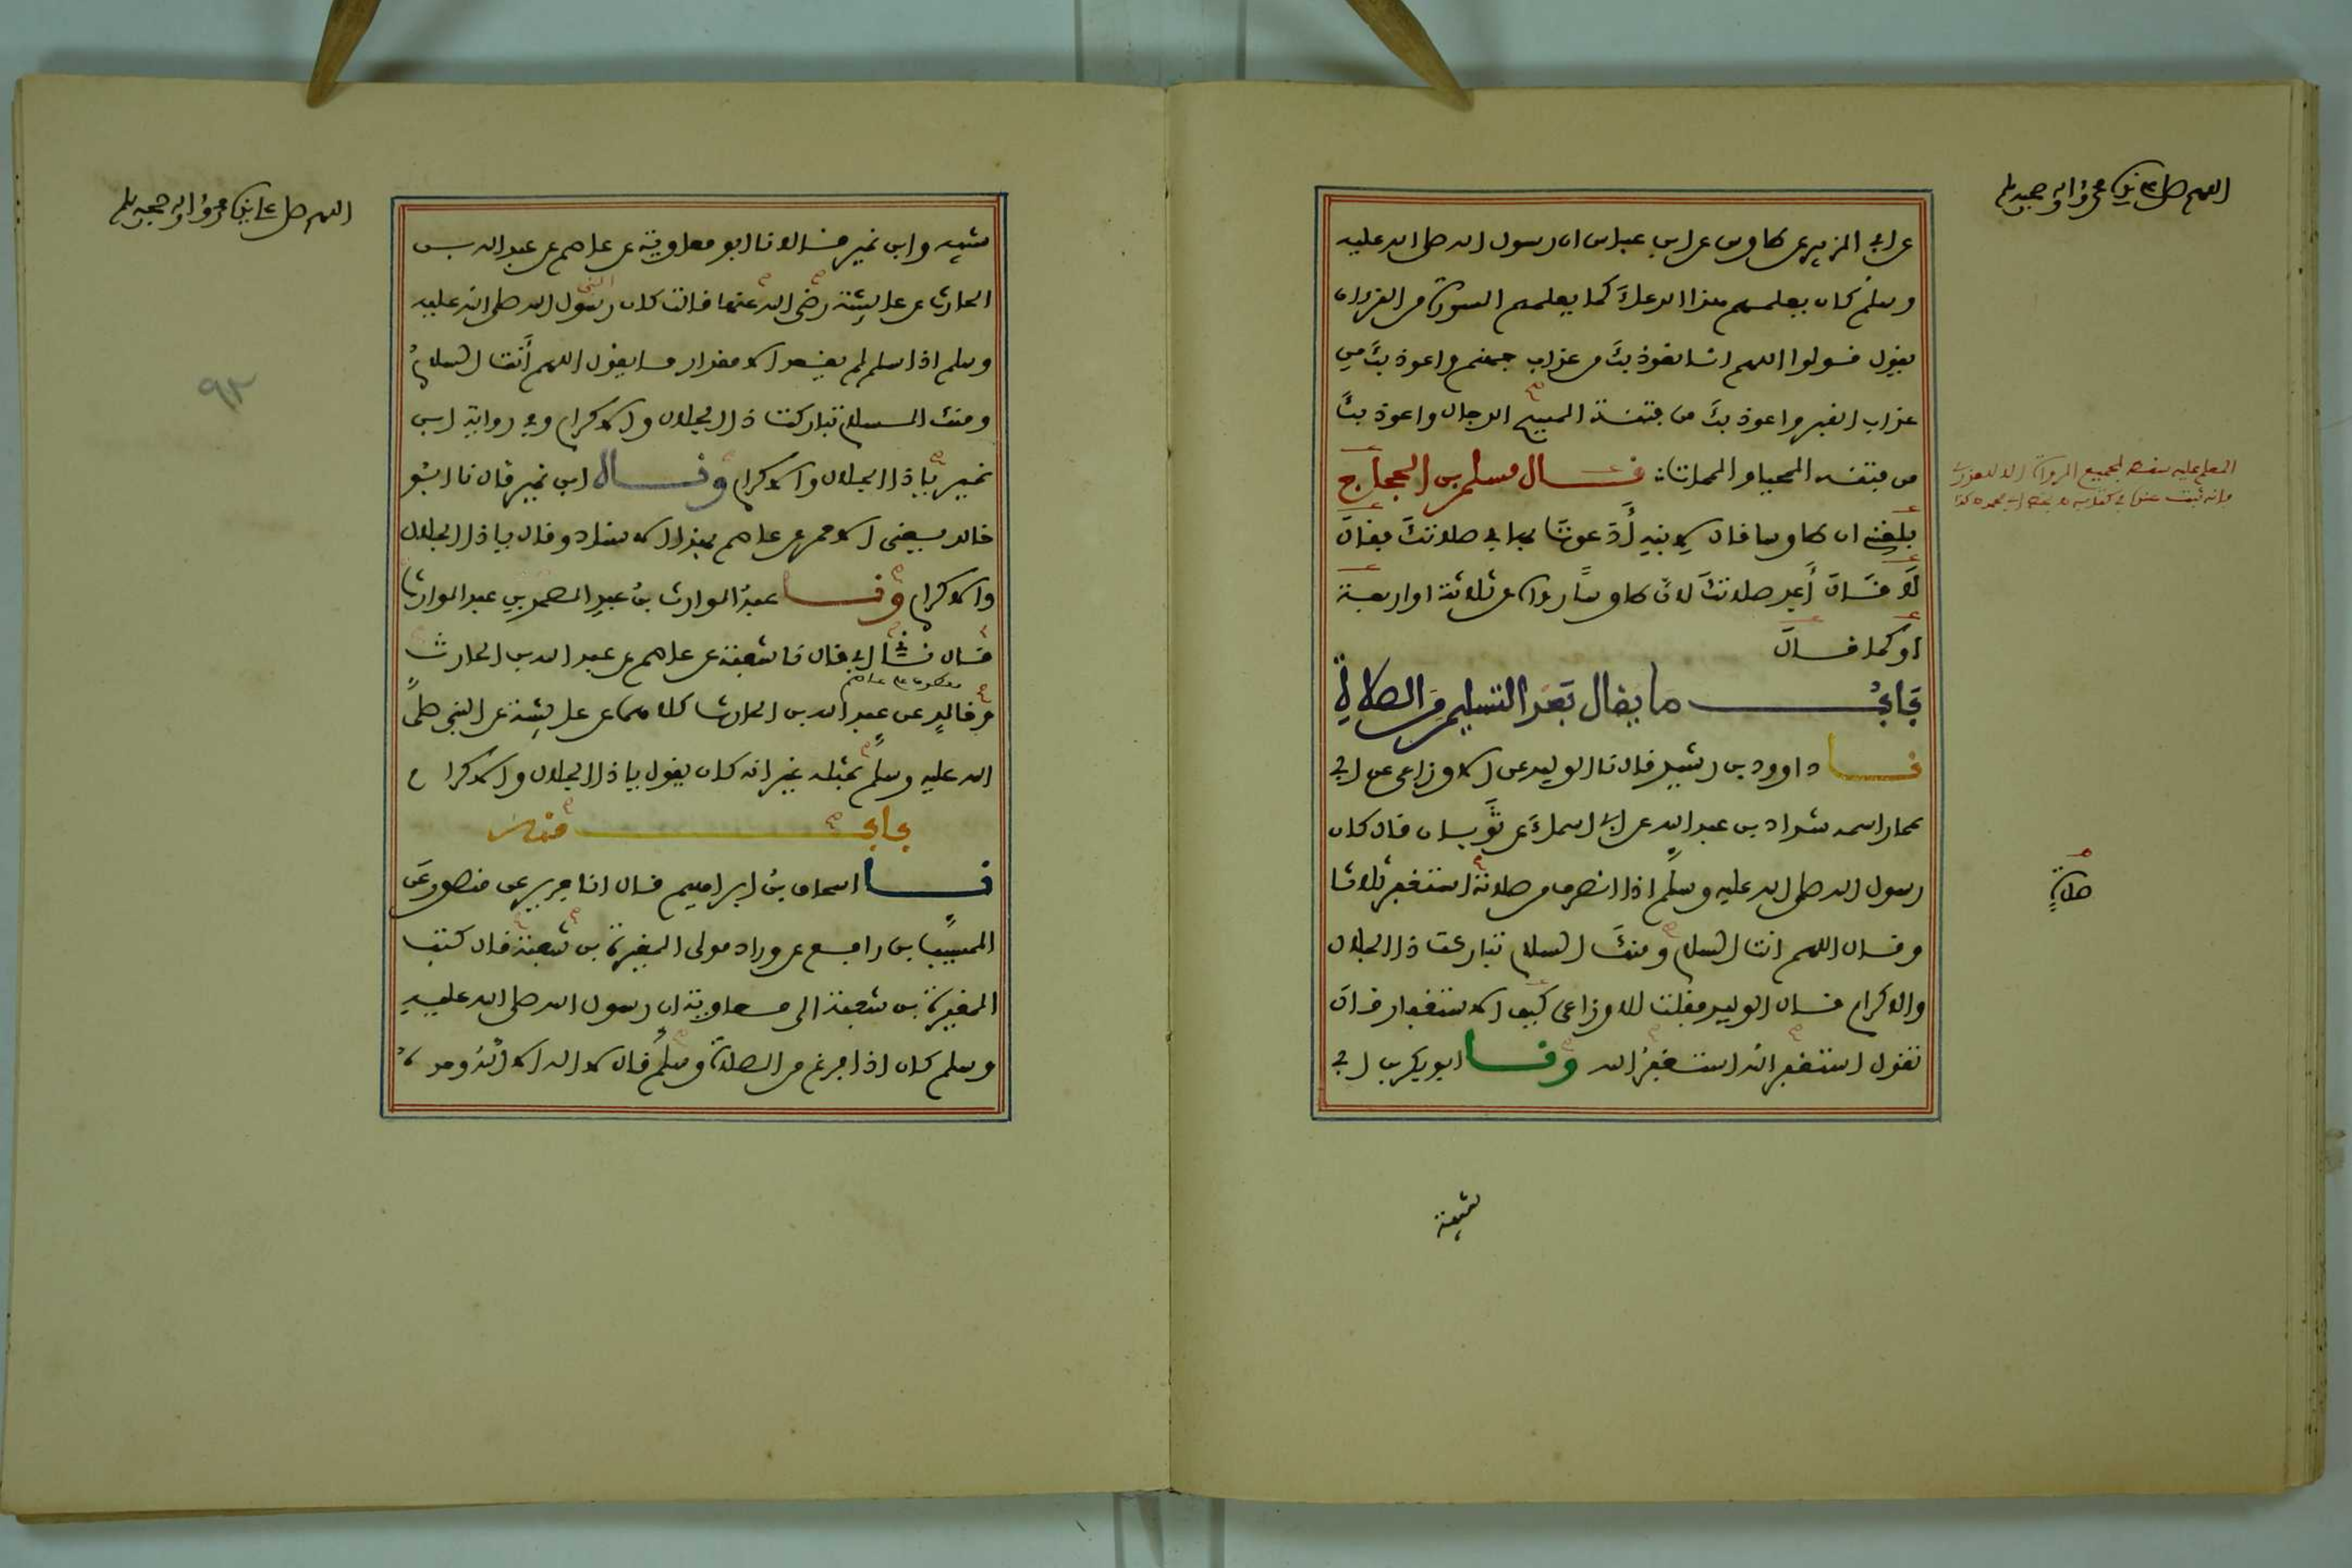 اللهم صل على نبينا محمد واله وصحبه وسلم
عن ابي الزبير عن طاوس عن ابن عباس ان رسول الله صلى الله عليه
وسلم كان يعلمهم هذا الدعاء كما يعلمهم السورة من القرءان
يقول قولوا اللهم انا نعوذ بك من عذاب جهنم واعوذ بك من
عذاب القبر واعوذ بك من فتنة المسيح الدجال واعوذ بك
من فتنة المحيا والممات قال مسلم بن الحجاج
بلغني ان طاوسا قال لابنه أدعوت بها في صلاتك فقال
لا قال أعد صلاتك لان طاوسا رواه عن ثلاثة او اربعة
او كما قال
باب ما يقال بعد التسليم من الصلاة
نا داوود بن رشيد قال نا الوليد عن الاوزاعي عن ابي
عمار اسمه شداد بن عبد الله عن ابي اسماء عن ثوبان قال كان
رسول الله صلى الله عليه وسلم اذا انصرف من صلاته استغفر ثلاثا
وقال اللهم انت السلام ومنك السلام تباركت ذا الجلال
والاكرام قال الوليد فقلت للاوزاعي كيف الاستغفار قال
تقول استغفر الله استغفر الله ونا ابو بكر بن ابي
شيبة
اللهم صل على نبينا محمد واله وصحبه وسلم
شيبه وابن نمير قالا نا ابو معاوية عن عاصم عن عبد الله بن
الحارث عن عايشة رضى الله عنها قالت كان رسول الله صلى الله عليه
النبي
وسلم اذا سلم لم يقعد الا مقدار ما يقول اللهم أنت السلام
ومنك السلام تباركت ذا الجلال والاكرام وفي رواية ابن
نمير ياذا الجلال والاكرام ونا ابن نمير قال نا ابو
خالد يعني الاحمر عن عاصم بهذا الاسناد وقال ياذا الجلال
والاكرام ونا عبد الوارث بن عبد الصمد بن عبد الوارث
قال ني ابي قال نا شعبة عن عاصم عن عبد الله بن الحارث
وخالد عن عبد الله بن الحارث كلاهما عن عايشة عن النبي صلى
الله عليه وسلم بمثله غير انه كان يقول ياذا الجلال والاكرام
باب منه
نا اسحاق بن ابراهيم قال انا جرير عن منصور عن
المسيب بن رافع عن وراد مولى المغيرة بن شعبة قال كتب
المغيرة بن شعبة الى معاوية ان رسول الله صلى الله عليه
وسلم كان اذا فرغ من الصلاة وسلم قال لا اله الا الله وحده لا
٩٣